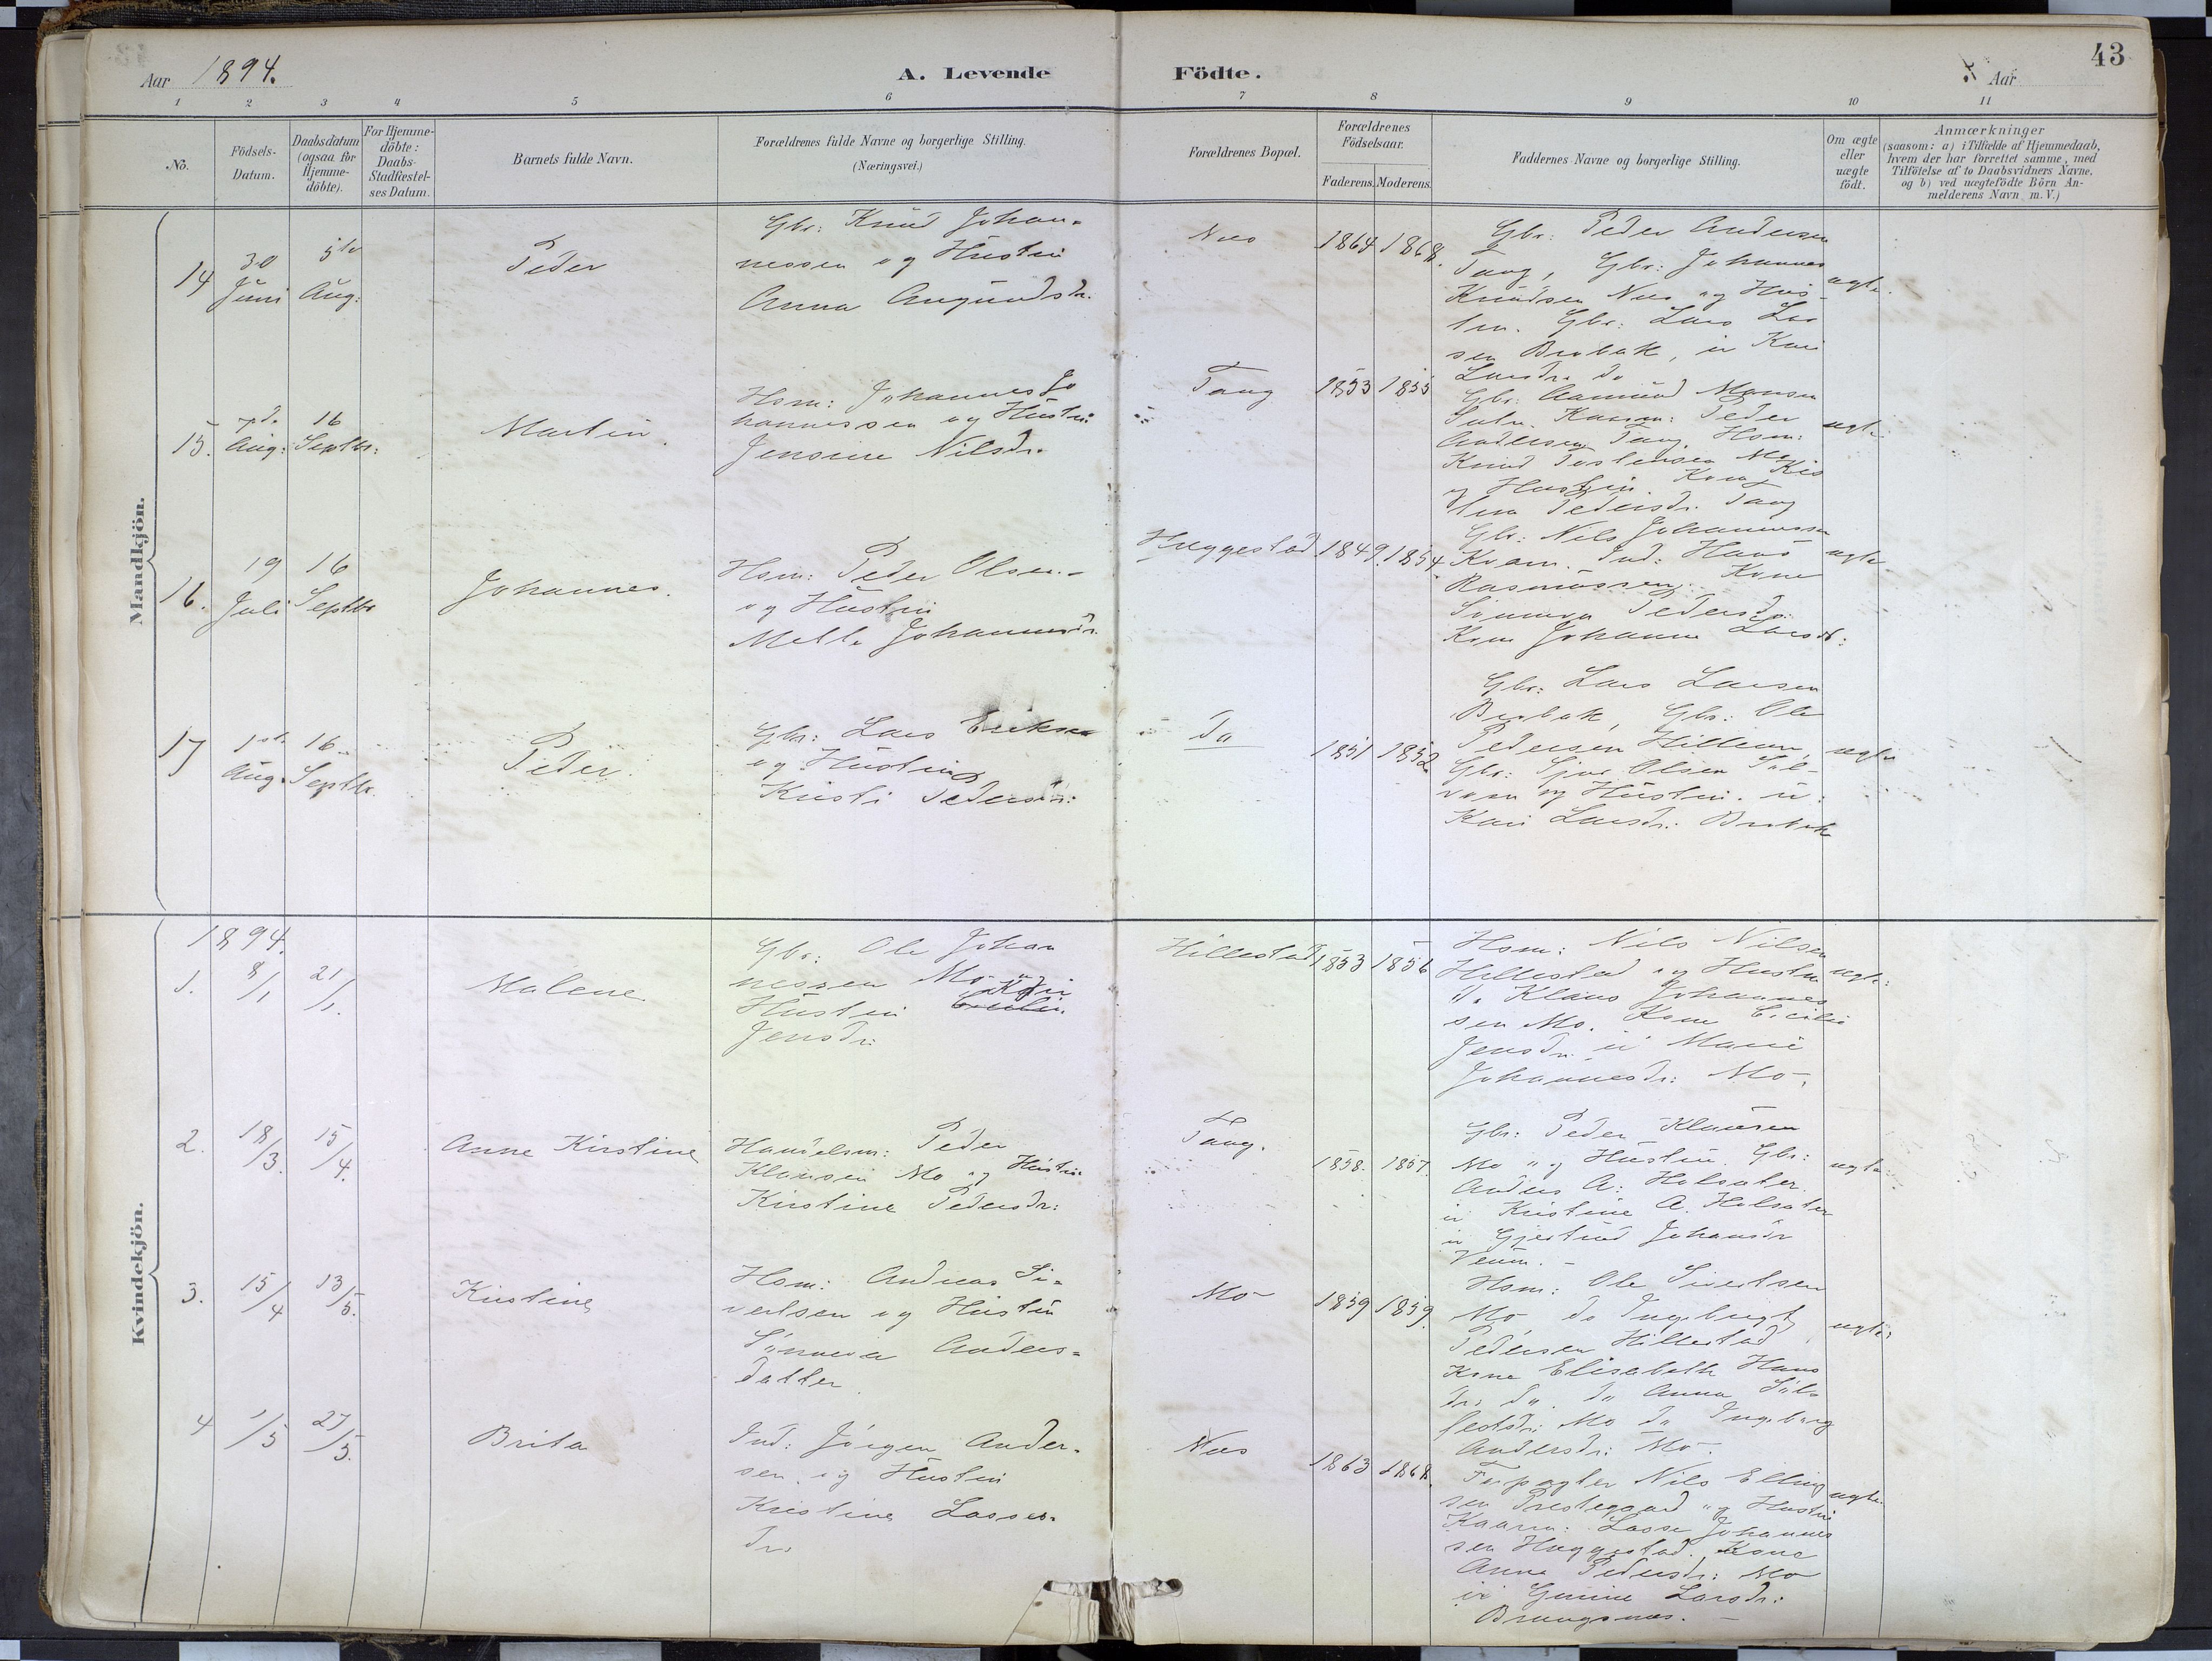 43
Aar 1894.
A. Levende Födte.
Aar
1 2 3 4 5 6 7 8 9 10 11
No.
Födsels-
Datum.
Daabsdatum
(ogsaa for
Hjemme-
döbte).
For Hjemme-
döbte:
Daabs-
Stadfæstel-
ses Datum.
Barnets fulde Navn.
Forældrenes fulde Navne og borgerlige Stilling.
(Næringsvei.)
Forældrenes Bopæl.
Forældrenes
Födselsaar.
Faderens. Moderens.
Faddernes Navne og borgerlige Stilling.
Om ægte
eller
uægte
födt.
Anmærkninger
(saasom: a) i Tilfælde af Hjemmedaab,
hvem der har forrettet samme, med
Tilföielse af to Daabsvidners Navne,
og b) ved uægtefödte Börn An-
melderens Navn m. V.)
Mandkjön.
14
30
Juni
5te
Aug:
Peder
Gbr: Knud Johan-
nessen og Hustru
Anna Amundsdr.
Nes
1864 1868.
Gbr: Peder Andersen
Tang, Gbr: Johannes
Knudsen Nes og Hus-
tru. Gbr: Lars Lar
sen Brobak, u Kari
Larsdr. do
ægte.
15.
7de
Aug:
16
Septbr:
Martin.
Hsm: Johannes Jo
hannessen og Hustru
Jensine Nilsdr.
Tang
1853 1855
Gbr: Aamund Monsen
Peder
Andersen Tang. Hsm:
Knud
og Hustru. Kone
Pedersdr. Tang
ægte
16.
19
Juli
16
Septbr
Johannes.
Hsm: Peder Olsen
og Hustru
Mette Johannesdr.
Hæggestad
1849. 1854
Gbr: Nils Johannessen
Kvam. Ind: Hans
Rasmussen. Kone
Sünneva Pedersdr:
Kone Johanne Larsdr:
ægte
17
1ste
Aug.
16
Septbr.
Peder.
Gbr: Lars Eriksen
og Hustru
Kristi Pedersdr:
Do
1851 1852
Gbr: Lars Larsen
Brobak, Gbr: Ole
Pedersen Hilleren,
Gbr: Sjur Olsen Söl-
vorn og Hustru. u:
Kari Larsdr: Brobak
ægte
Kvindekjön.
1894.
1.
8/1
21/1.
Malene
Gbr: Ole Johan
nessen Mo og
Hustru Kari
Jensdr:
Hillestad
1853 1856
Hsm: Nils Nilsen
Hillestad og Hustru
d. Klaus Johannes
sen Mo. Kone Cicilie
Jensdr. u Marie
Johannesdr: Mo.
ægte:
2.
18/3.
15/4.
Anne Kirstine
Handelsm: Peder
Klausen Mo og Hustru
Kirstine Pedersdr:
Tang.
1858. 1857.
Gbr: Peder Klausen
Mo og Hustru. Gbr:
Anders A: Holsæter.
u Kristine A. Holsæter
u Gjertrud Johansdr
Venm.
ægte:
3.
15/4
13/5.
Kirstine
Hsm: Andreas Si-
vertsen og Hustru
Sünneva Anders-
datter.
Mo
1859 1859.
Hsm: Ole Sivertsen
Mo do Ingebrigt
Pedersen Hillestad
Kone Elisabeth Hans
dr: do. do Anna Söl-
festdr: Mo do Ingeborg
Andersdr: Mo.
ægte:
4
1/5
27/5.
Brita
Ind: Jörgen Ander-
sen og Hustru
Kristine Lasses-
dr.
Nes
1863 1868
Forpagter Nils Elling
sen Prestegaard og Hustru
Kaarm: Lasse Johannes
sen Hæggestad. Kone
Anna Pedersdr: Mo
u: Gurine Larsdr: